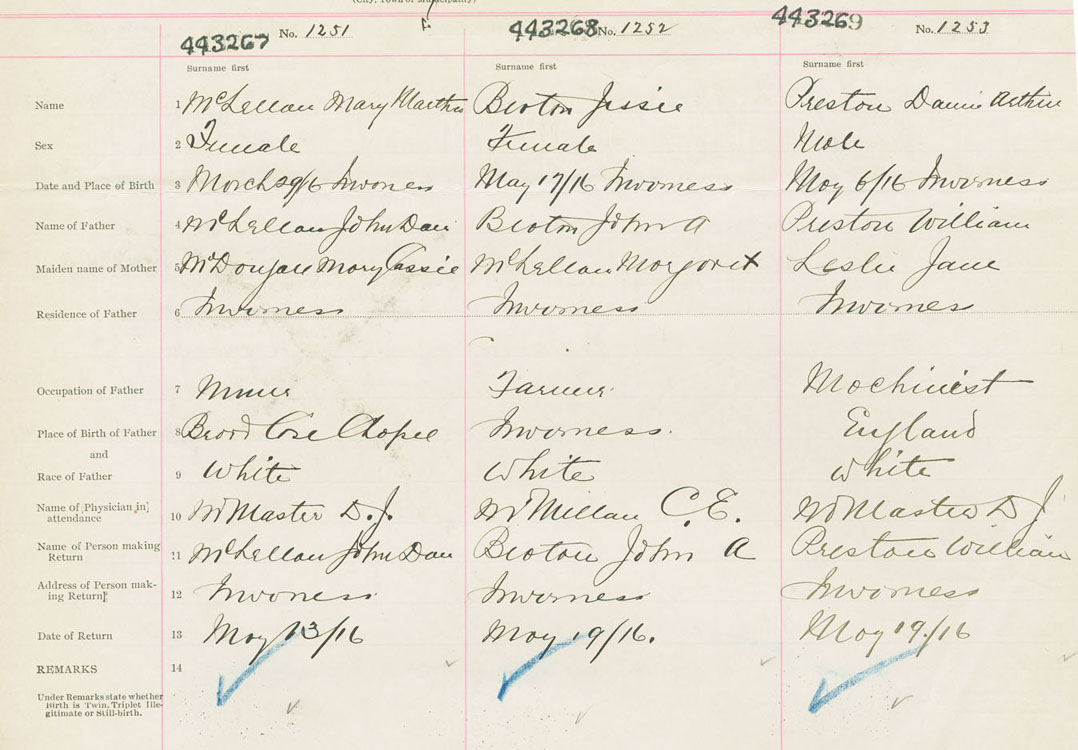 (City, Town or Municipality)
443267 No. 1251 443268 No. 1252 443269 No. 1253
Surname first Surname first Surname first
Name 1 McLellan Mary Martha Beaton Jessie Preston Arthur
Sex 2 Female Female Male
Date and Place of Birth 3 March 29/16 Inverness May 17/16 Inverness May 6/16 Inverness
Name of Father 4 McLellan John Dan Beaton John A Preston William
Maiden name of Mother 5 McDougall Mary Cassie McLellan Margaret Leslie Jane
Residence of Father 6 Inverness Inverness Inverness
Occupation of Father 7 Miner Farmer Machinist
Place of Birth of Father 8 Broad Cove Chapel Inverness. England
and
Race of Father 9 White White White
Name of [Physician in]
attendance 10 McMaster D. J. McMillan C. E. McMaster D J
Name of Person making
Return 11 McLellan John Dan Beaton John A Preston William
Address of Person mak-
ing Return] 12 Inverness Inverness Inverness
Date of Return 13 May 13/16 May 19/16. May 19/16
REMARKS 14
Under Remarks state whether
Birth is Twin, Triplet Ille-
gitimate or Still-birth.